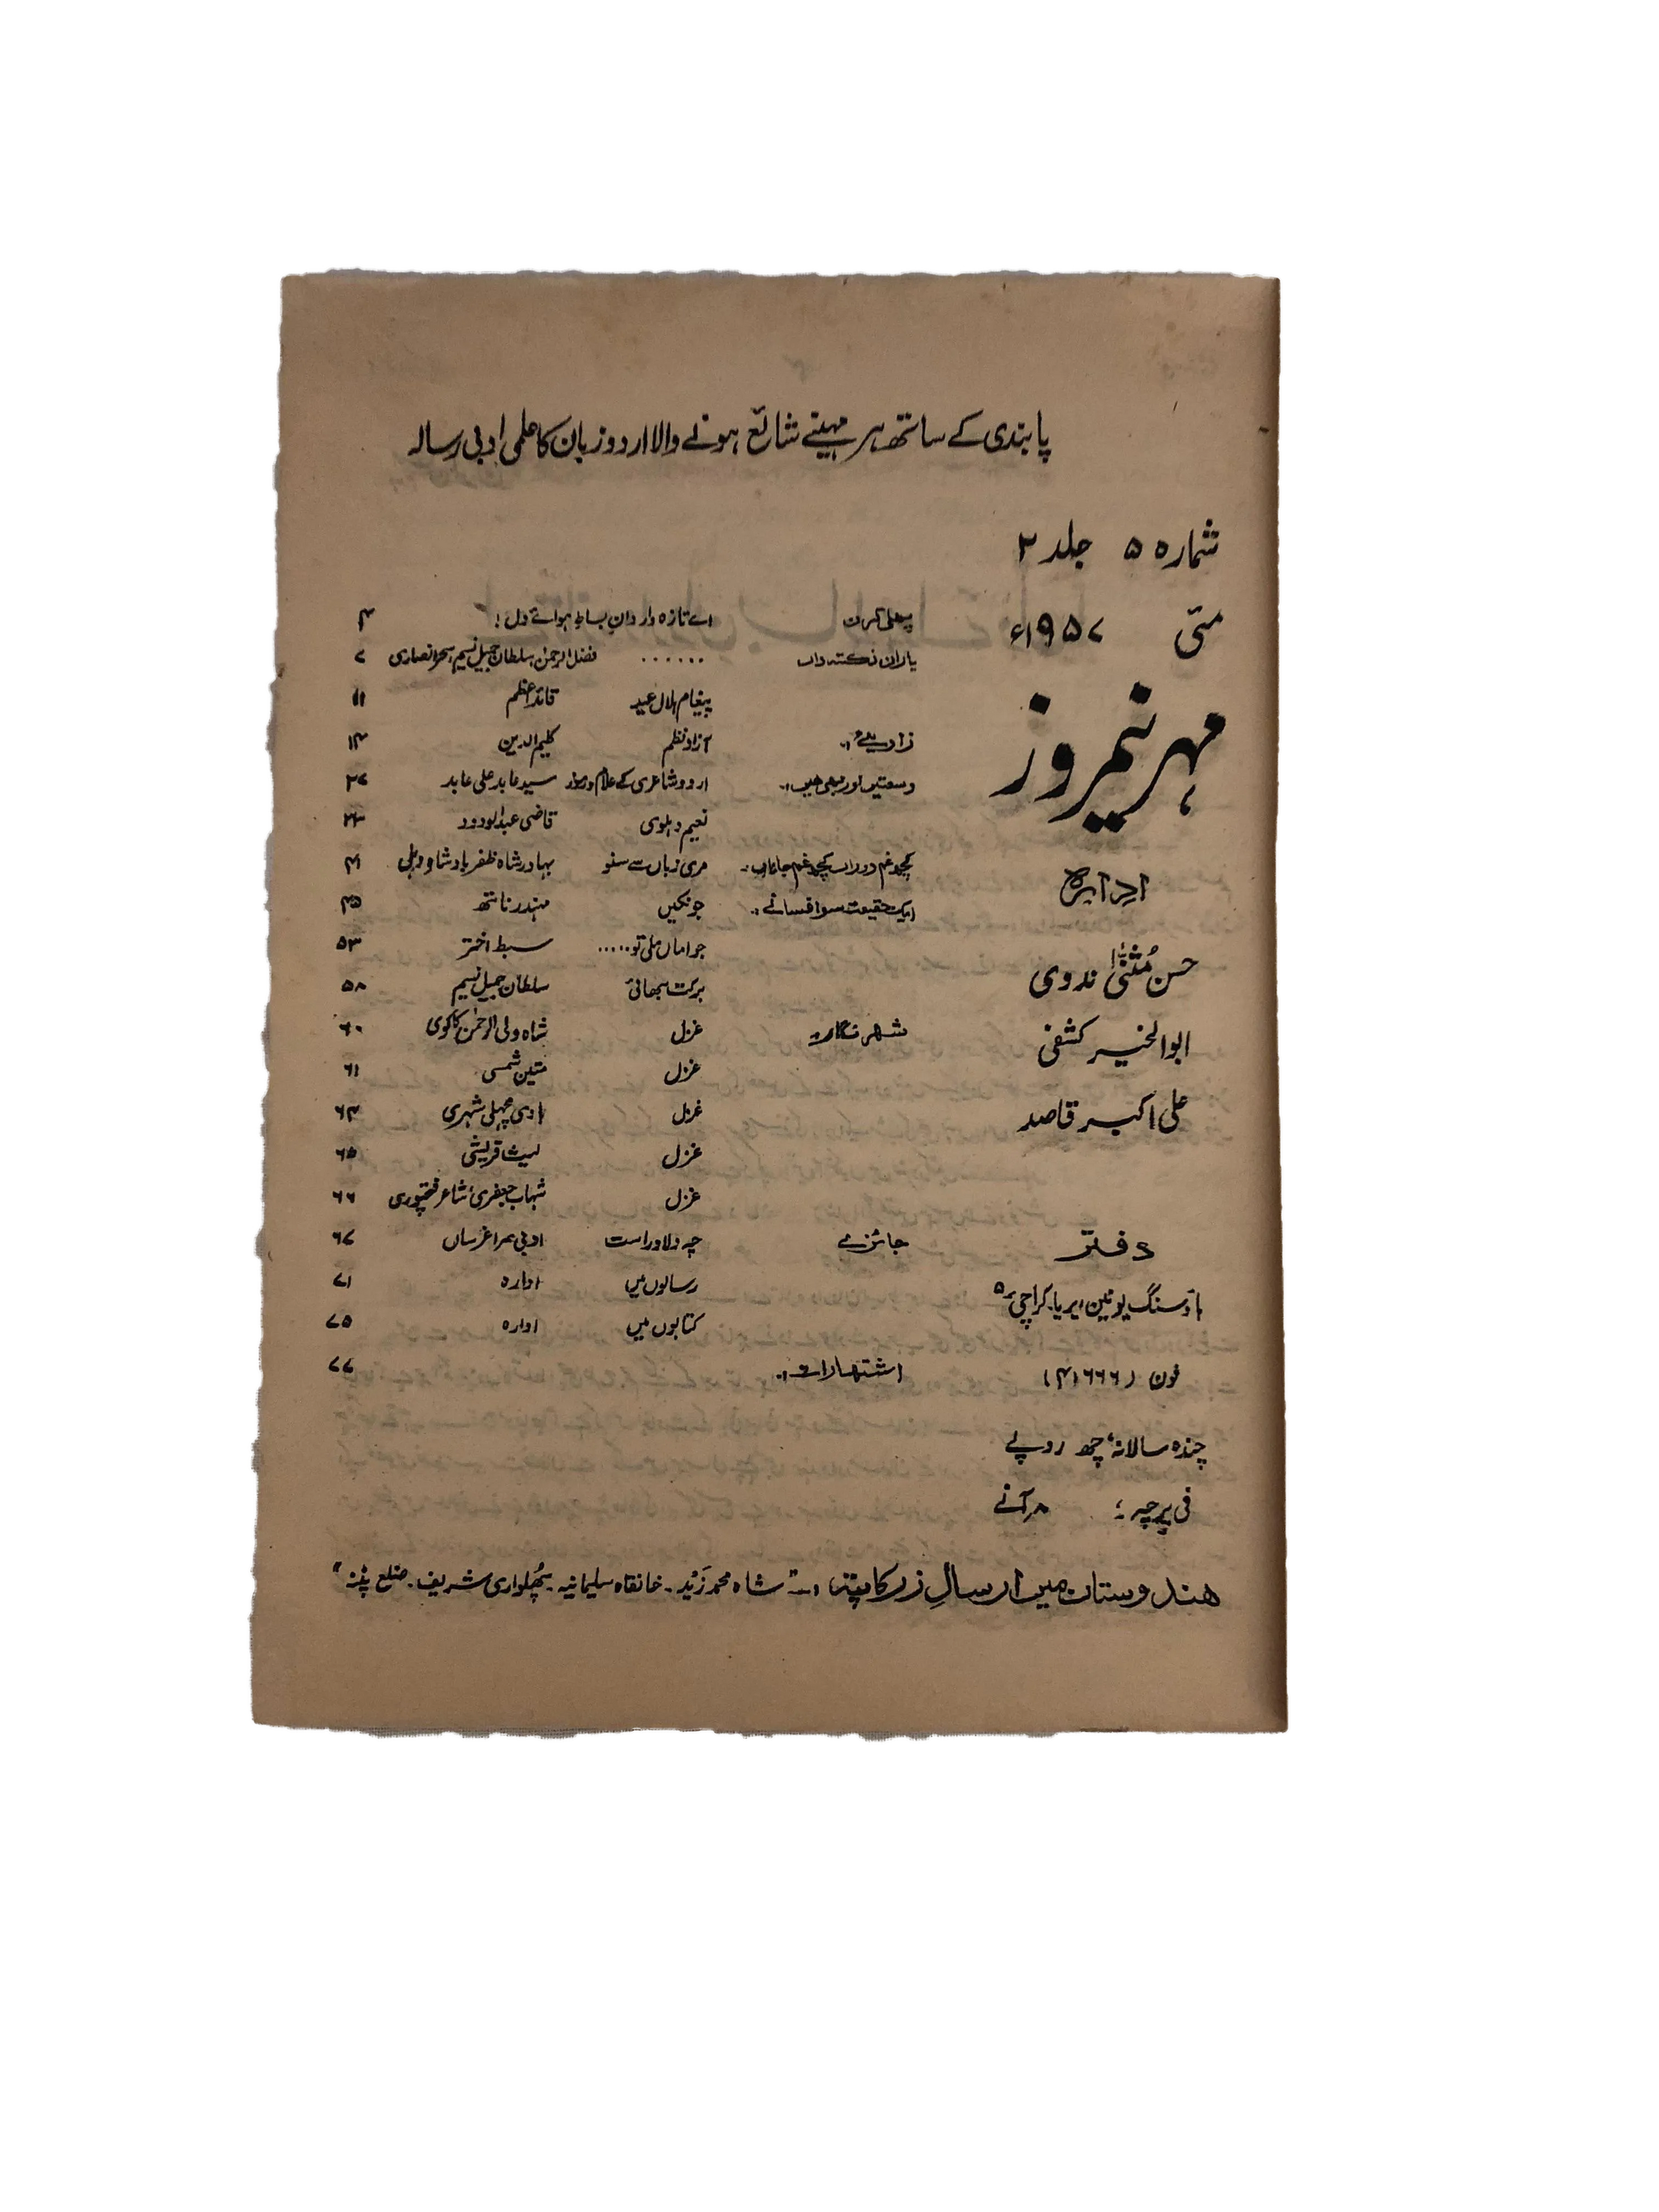 پابندی کے ساتھ ہر مہینے شائع ہونے والا اردو زبان کا علمی ادبی رسالہ
شمارہ ۵ جلد ۲
مئی ۱۹۵۷ء
مہر نیمروز
ادارہ
حسن مُثنیٰ ندوی
ابوالخیر کشفی
علی اکبر قاصد
دفتر
ہاؤسنگ یونین ایریا۔ کراچی ۵
فون (۴۱۶۶۶)
چندہ سالانہ، چھ روپے
فی پرچہ : ۸ر آنے
پہلی کرن اے تازہ واردانِ بساطِ ہوائے دل! ۴
یاران نکتہ داں ...... فضل الرحمٰن، سلطان جمیل نسیم، سحر انصاری ۷
پیغام ہلال عید قائد اعظم ۱۱
زاویے آزاد نظم کلیم الدین ۱۴
وسعتیں اور بھی ہیں اردو شاعری کے علائم و رموز سید عابد علی عابد ۲۷
نعیم دہلوی قاضی عبدالودود
کچھ غم دوراں کچھ غم جاناں مری زباں سے سنو بہادر شاہ ظفر بادشاہ دہلی ۴۱
ایک حقیقت سو افسانے جونکیں مہندر ناتھ ۴۵
جو اماں ملی تو..... سبط اختر ۵۳
برکت بھائی سلطان جمیل نسیم ۵۸
شہر نگار غزل شاہ ولی الرحمٰن کاکوی ۶۰
غزل متین شمسی ۶۱
غزل ہادی مچھلی شہری ۶۴
غزل لیث قریشی ۶۵
غزل شہاب جعفری، شاعر فتحپوری ۶۶
جائزے چہ دلاور است ادبی سراغرساں ۶۷
رسالوں میں ادارہ ۷۱
کتابوں میں ادارہ ۷۵
اشتہارات ۷۷
ہندوستان میں ارسالِ زر کا پتہ :- شاہ محمد زَید۔ خانقاہ سلیمانیہ۔ پُھلواری شریف۔ ضلع پٹنہ